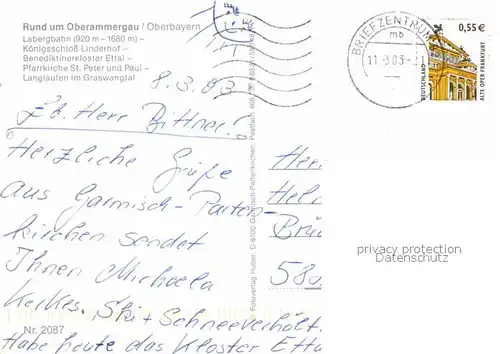 Rund um Oberammergau / Oberbayern
Labergbahn (920 m – 1680 m) –
Königsschloß Linderhof –
Benediktinerkloster Ettal –
Pfarrkirche St. Peter und Paul –
Langlaufen im Graswangtal
8.3.03
Lb. Herr Bittner!
Herzliche Grüße
aus Garmisch-Parten-
kirchen sendet
Ihnen Michaela
Kerkes. Ski + Schneeverhält
Habe heute das Kloster Etta
Nr. 2087
Fotoverlag Huber, D-8100 Garmisch-Partenkirchen
BRIEFZENTRUM
mb
11.-3.03
0,55 €
DEUTSCHLAND
ALTE OPER FRANKFURT
Her
Hel
Brü
580
privacy protection
Datenschutz